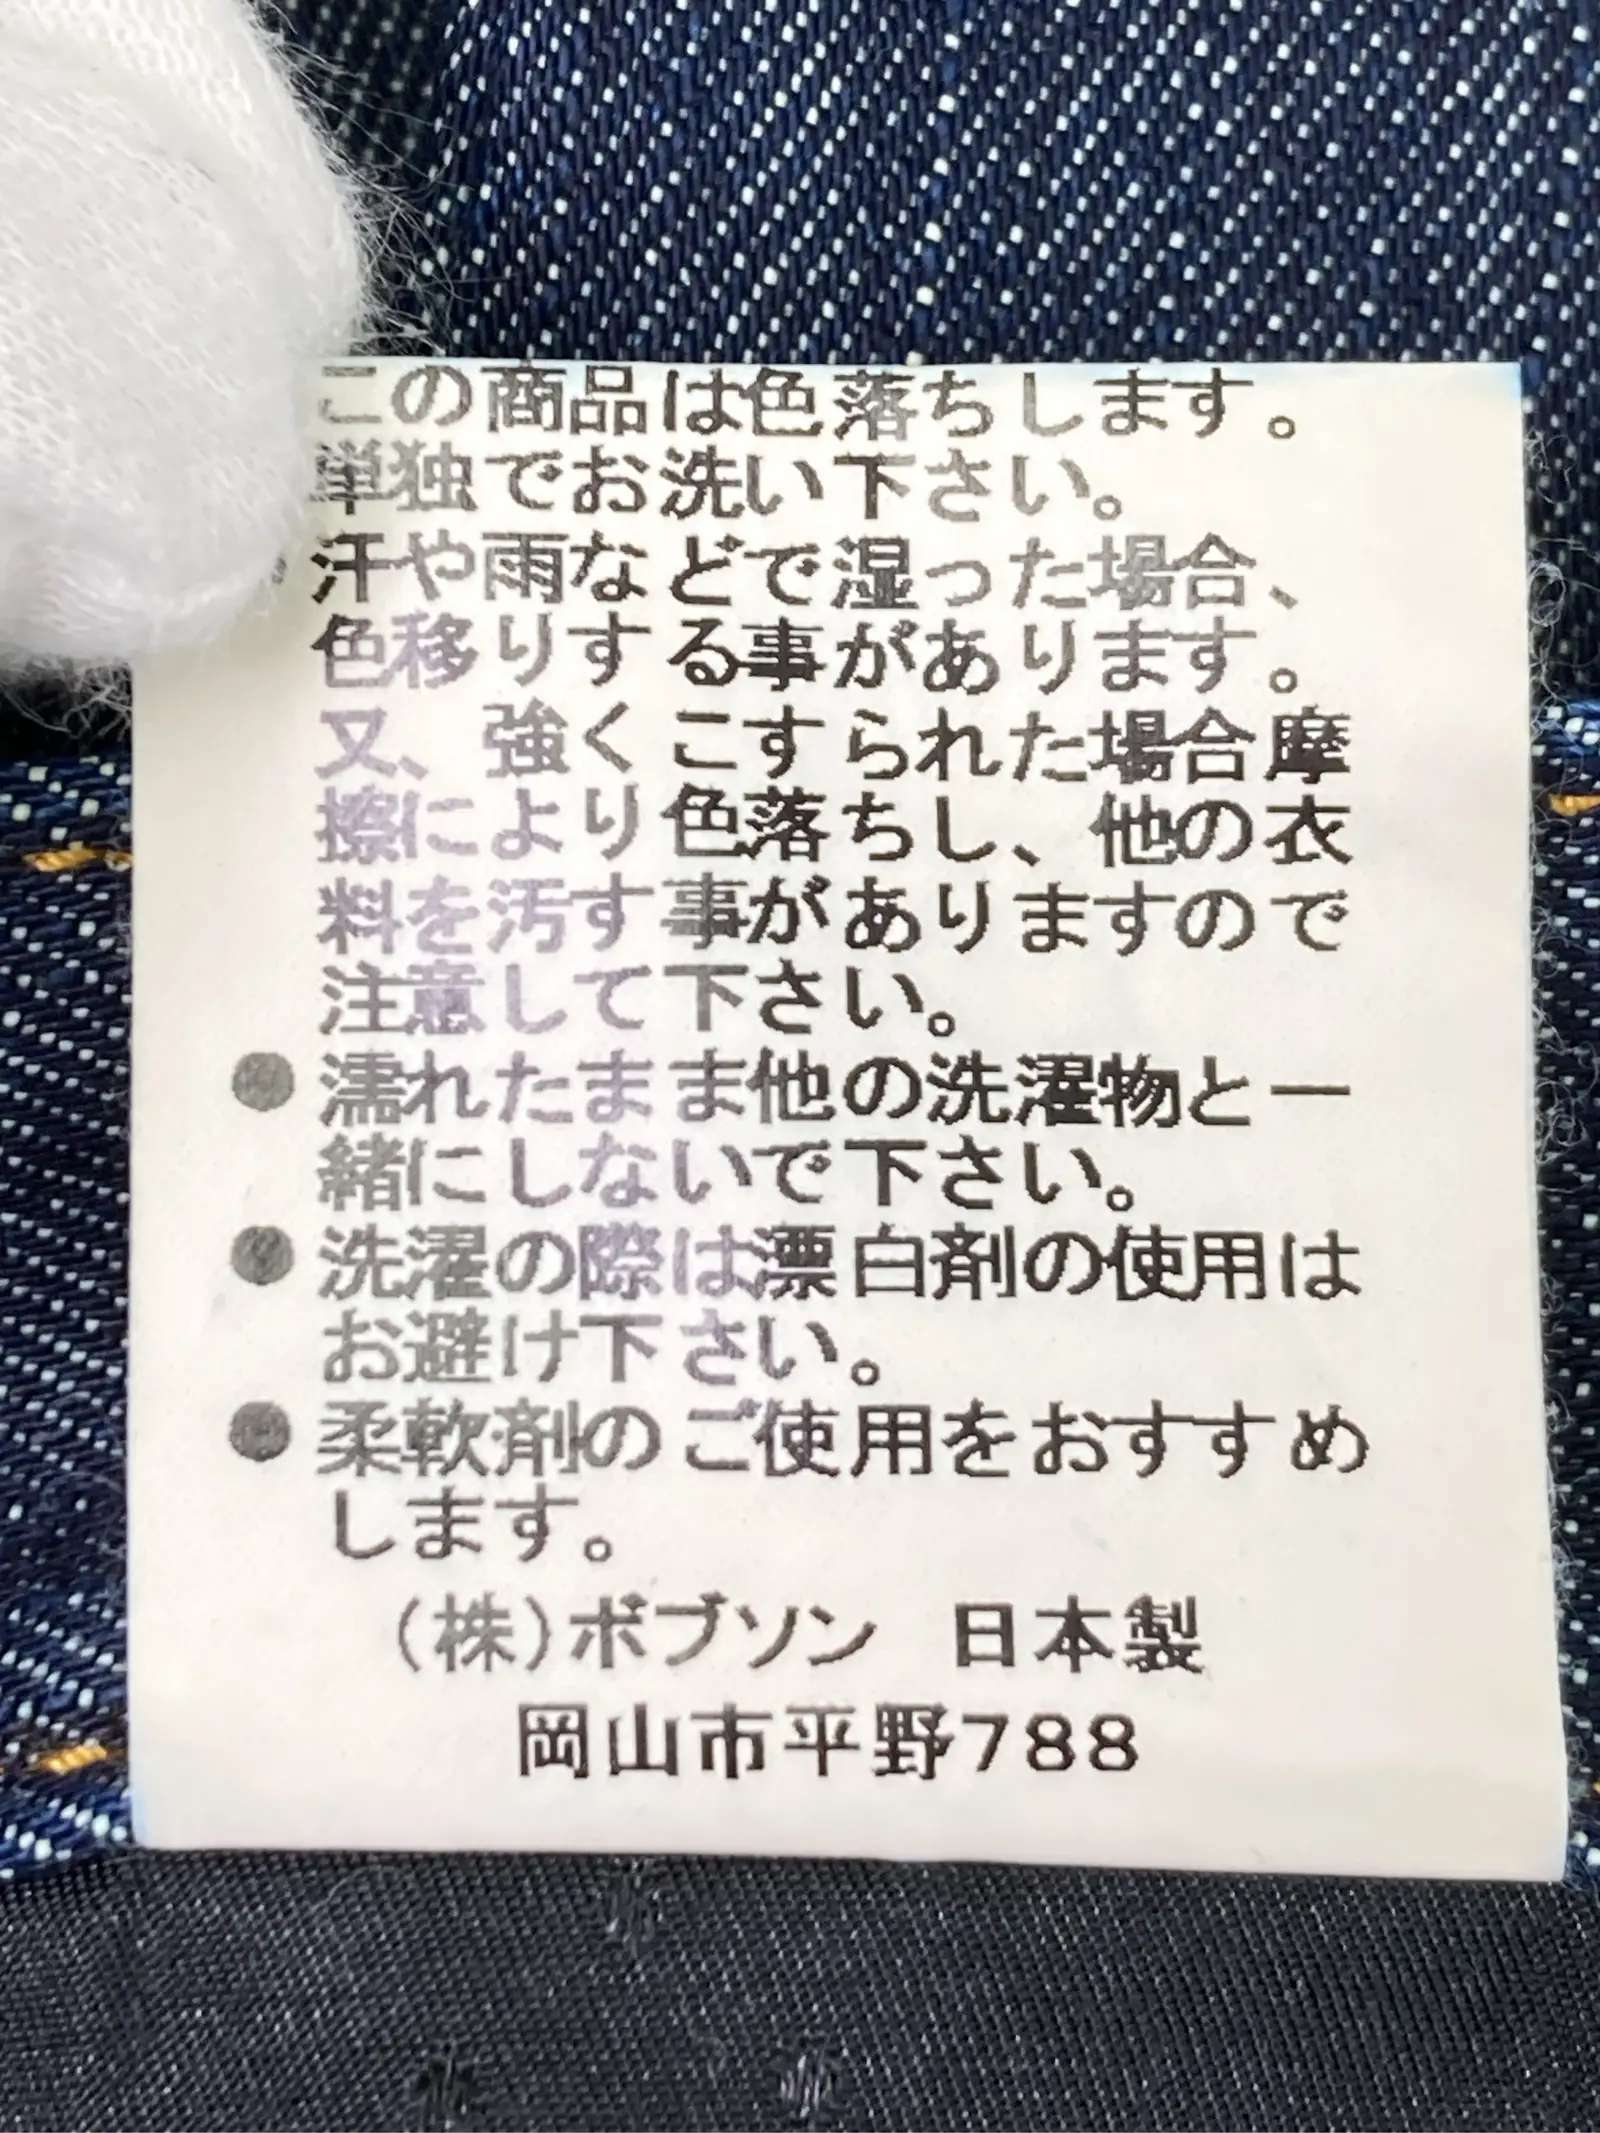 この商品は色落ちします。
単独でお洗い下さい。
汗や雨などで湿った場合、
色移りする事があります。
又、強くこすられた場合摩
擦により色落ちし、他の衣
料を汚す事がありますので
注意して下さい。
●濡れたまま他の洗濯物と一
緒にしないで下さい。
●洗濯の際は漂白剤の使用は
お避け下さい。
●柔軟剤のご使用をおすすめ
します。
(株)ボブソン 日本製
岡山市平野788